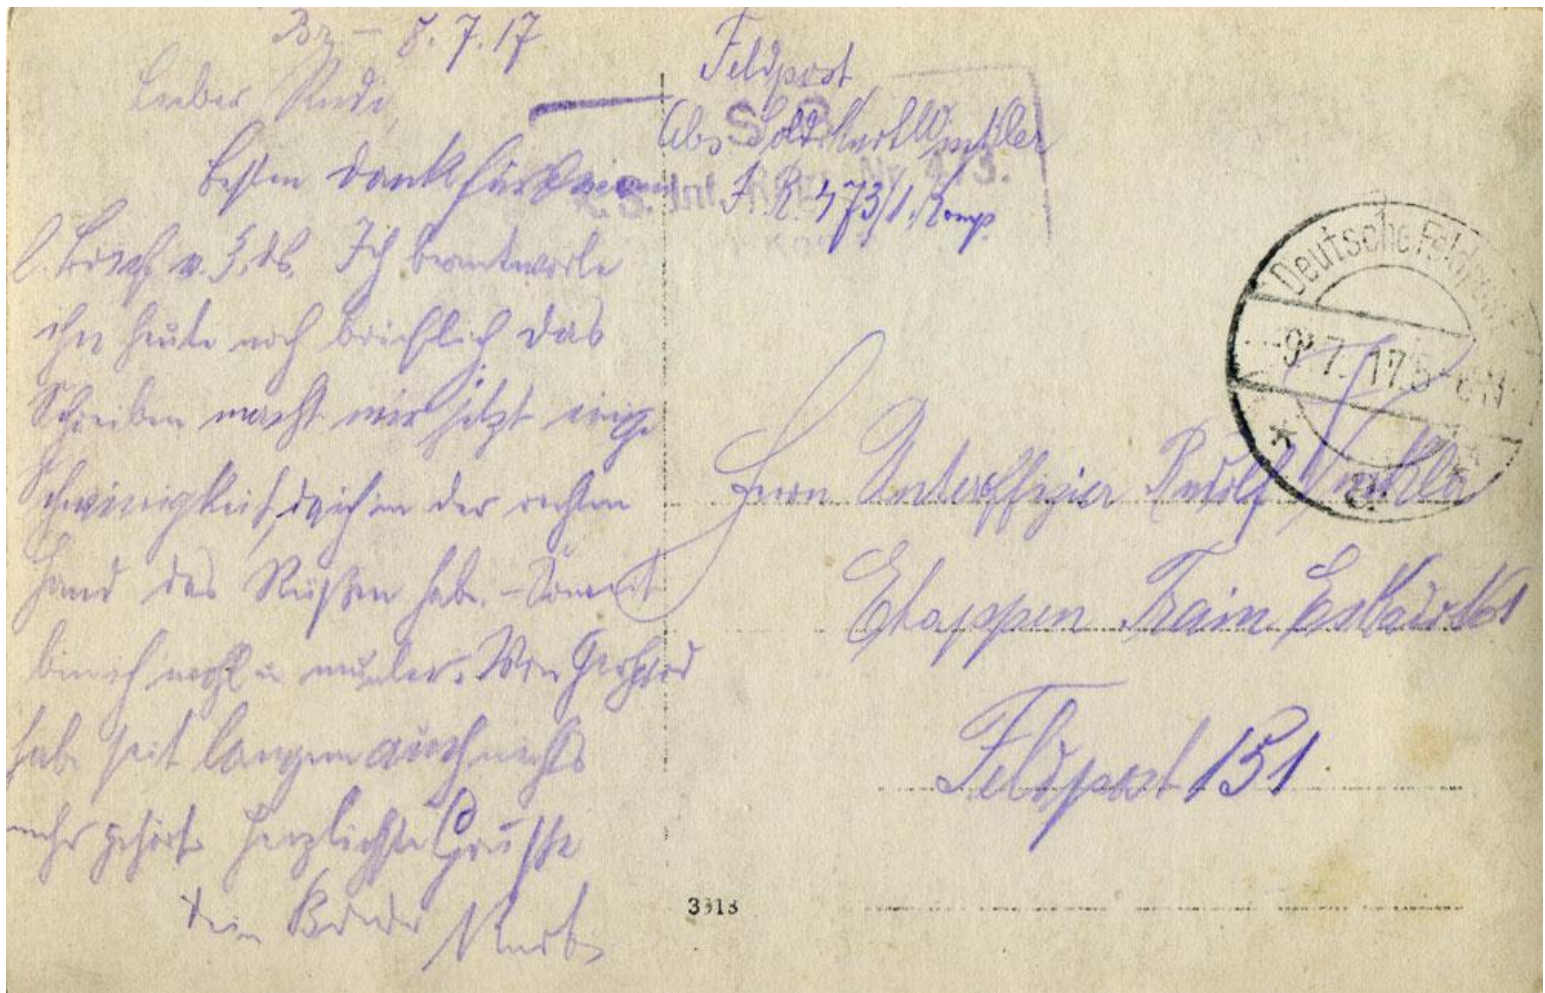 8.7.17
Lieber Rudi,
Besten Dank für Deinen
l. Brief v. 5. ds. Ich beantworte
ihn heute noch brieflich das
Schreiben macht mir jetzt einige
Schwierigkeit, da ich in der rechten
Hand das Reißen habe. – Somit
bin ich wohl u. munter. Von Gerhard
habe seit langem auch nichts
mehr gehört. Herzlichste Grüsse
Dein Bruder
Feldpost
Abs. Sold. Winkler
J. R. 473/1. Komp.
S. B.
K. S. Inf. Regt. Nr. 473.
Deutsche Feldpost
9.7.17 5-6 N
Herrn Unteroffizier Rudolf Winkler
Etappen Train Eskadr. 61
Feldpost 151
3913